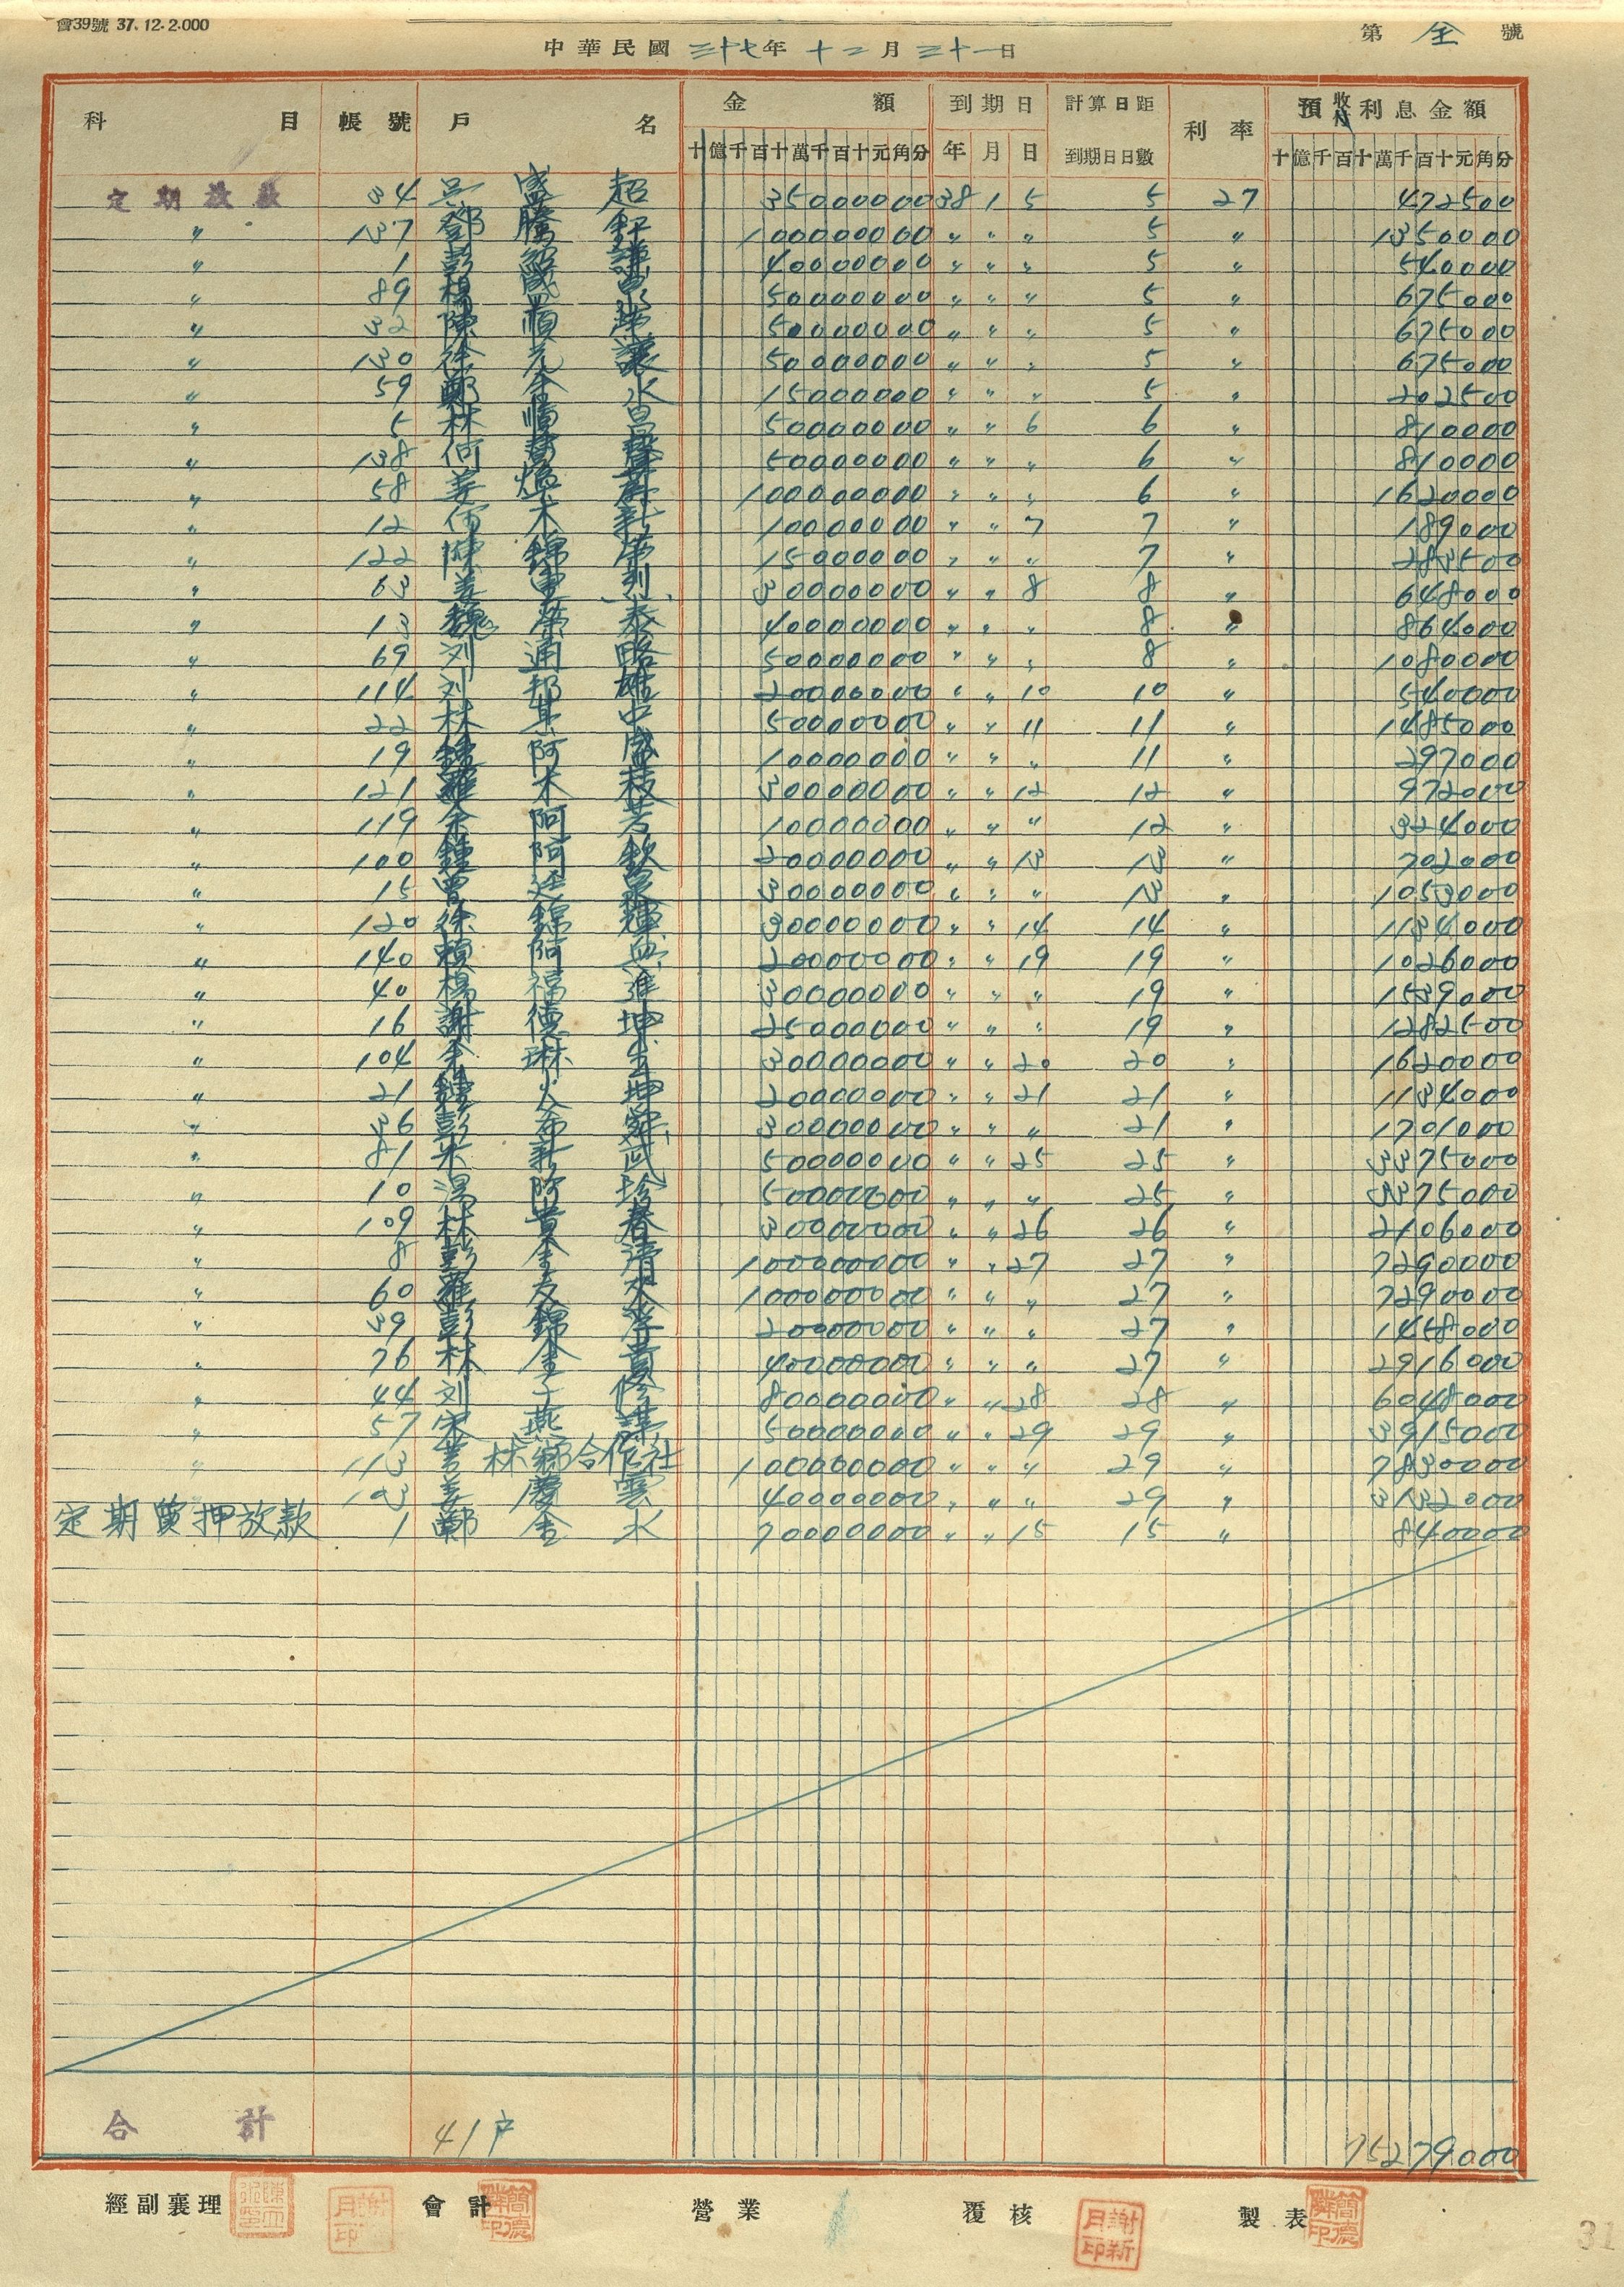 會39號 37.12.2.000
中華民國 三十七年 十二月 三十一日 第 全 號
科目 帳號 戶名 金額 到期日 計算日距到期日日數 利率 預收付利息金額
十億千百十萬千百十元角分 年 月 日 十億千百十萬千百十元角分
定期放款 34 吳盛超 35000000 38 1 5 5 27 472500
〃 137 鄧騰釬 100000000 〃 〃 〃 5 〃 1350000
〃 1 彭紹謹 40000000 〃 〃 〃 5 〃 540000
〃 89 楊 50000000 〃 〃 〃 5 〃 675000
〃 32 陳順榮 50000000 〃 〃 〃 5 〃 675000
〃 130 徐元讓 50000000 〃 〃 〃 5 〃 675000
〃 59 鄭金水 15000000 〃 〃 〃 5 〃 202500
〃 5 林 昌 50000000 〃 〃 6 6 〃 810000
〃 138 何 聲 50000000 〃 〃 〃 6 〃 810000
〃 58 姜煥蔚 100000000 〃 〃 〃 6 〃 1620000
〃 12 木新 10000000 〃 〃 7 7 〃 189000
〃 122 陳錦榮 15000000 〃 〃 〃 7 〃 283500
〃 63 姜 烈 30000000 〃 〃 8 8 〃 648000
〃 13 魏榮泰 40000000 〃 〃 〃 8 〃 864000
〃 69 刘通略 50000000 〃 〃 〃 8 〃 1080000
〃 114 刘邦雄 20000000 〃 〃 10 10 〃 540000
〃 22 林其中 50000000 〃 〃 11 11 〃 1485000
〃 19 鍾阿盛 10000000 〃 〃 〃 11 〃 297000
〃 121 羅木枝 30000000 〃 〃 12 12 〃 972000
〃 119 余阿芳 10000000 〃 〃 〃 12 〃 324000
〃 100 鍾阿欽 20000000 〃 〃 13 13 〃 702000
〃 15 曾廷泉 30000000 〃 〃 〃 13 〃 1053000
〃 120 徐錦輝 30000000 〃 〃 14 14 〃 1134000
〃 140 賴阿 20000000 〃 〃 19 19 〃 1026000
〃 40 楊福進 30000000 〃 〃 〃 19 〃 1539000
〃 16 謝德坤 25000000 〃 〃 〃 19 〃 1282500
〃 104 余琳 30000000 〃 〃 20 20 〃 1620000
〃 21 鍾火坤 20000000 〃 〃 21 21 〃 1134000
〃 36 彭希 30000000 〃 〃 〃 21 〃 1701000
〃 81 朱新武 50000000 〃 〃 25 25 〃 3375000
〃 10 湯阿珍 50000000 〃 〃 〃 25 〃 3375000
〃 109 林貴春 30000000 〃 〃 26 26 〃 2106000
〃 8 彭金清 100000000 〃 〃 27 27 〃 7290000
〃 60 羅友水 100000000 〃 〃 〃 27 〃 7290000
〃 39 彭錦 20000000 〃 〃 〃 27 〃 1458000
〃 76 林金貴 40000000 〃 〃 〃 27 〃 2916000
〃 44 刘子修 80000000 〃 〃 28 28 〃 6048000
〃 57 宋燕謀 50000000 〃 〃 29 29 〃 3915000
〃 113 芎林鄉合作社 100000000 〃 〃 〃 29 〃 7830000
〃 103 姜慶雲 40000000 〃 〃 〃 29 〃 3132000
定期質押放款 1 鄭金水 70000000 〃 〃 15 15 〃 840000
合計 41戶 75279000
經副襄理 會計 營業 覆核 製表
謝新月印 簡德 印
31